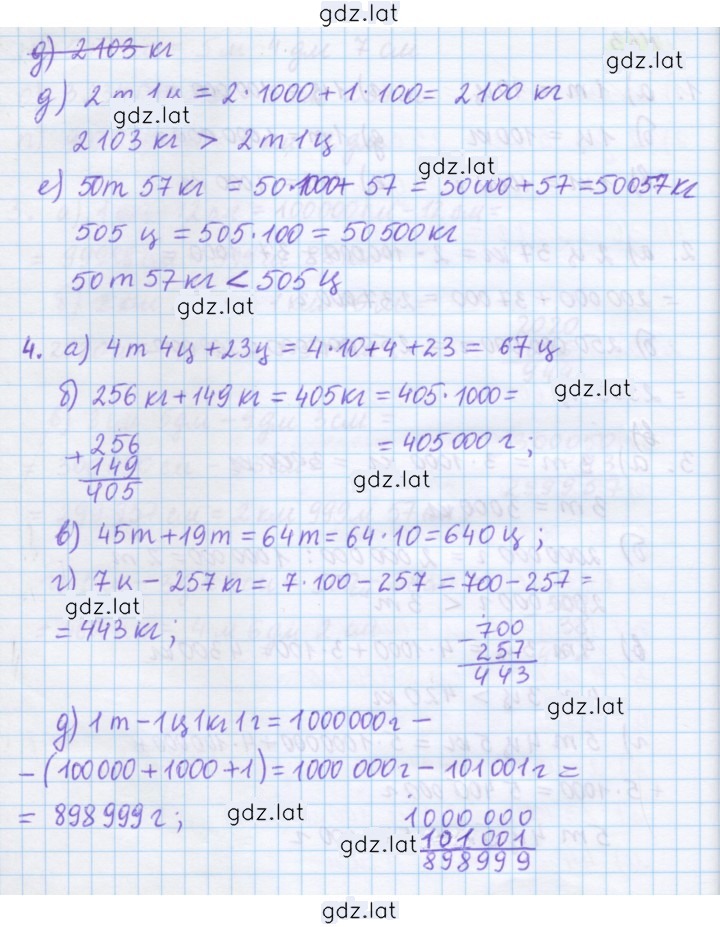 gdz.lat
д) 2103 кг
gdz.lat
д) 2т 1ц = 2·1000+1·100= 2100 кг
gdz.lat
2103 кг > 2т 1ц
gdz.lat
е) 50т 57кг = 50·1000+ 57 = 50000+57=50057кг
505 ц = 505·100 = 50500кг
50т 57кг < 505 ц
gdz.lat
4. а) 4т 4ц +23ц = 4·10+4+23 = 67 ц
б) 256 кг+149 кг = 405кг = 405·1000=
gdz.lat
+ 256
149
405
= 405 000 г ;
gdz.lat
в) 45т+19т=64т=64·10=640ц ;
г) 7ц - 257кг = 7·100-257 = 700-257 =
gdz.lat
= 443 кг ;
- 700
257
443
gdz.lat
д) 1т-1ц1кг1г=1000000г -
-(100000+1000+1)=1000 000г-101001г =
= 898 999г ;
gdz.lat
1000 000
gdz.lat
101 001
898999
gdz.lat